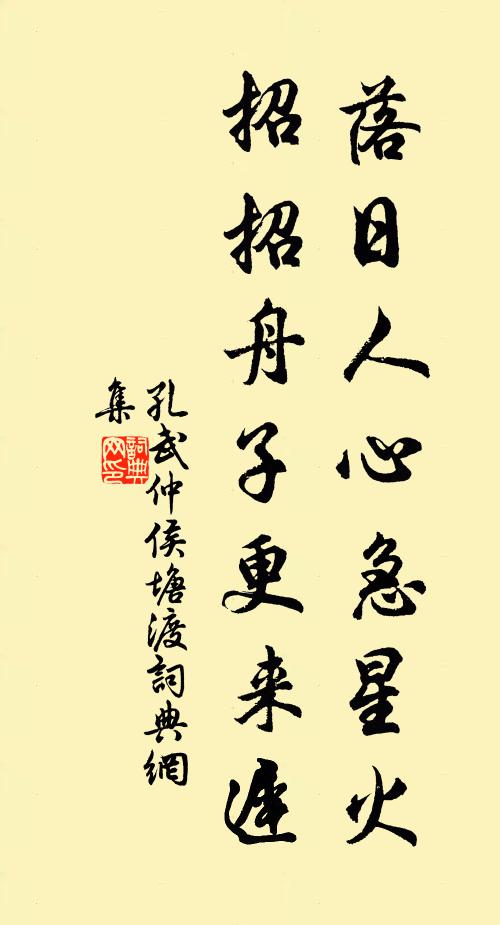 落日人心急星火
招招舟子更来遲
孔武仲侯塘渡詞典網
集
詞典網印